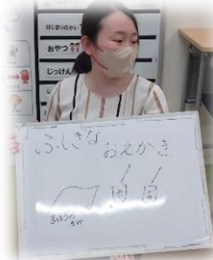 はじまりのかい
おやつ
じっけん
ふしぎな
おえかき